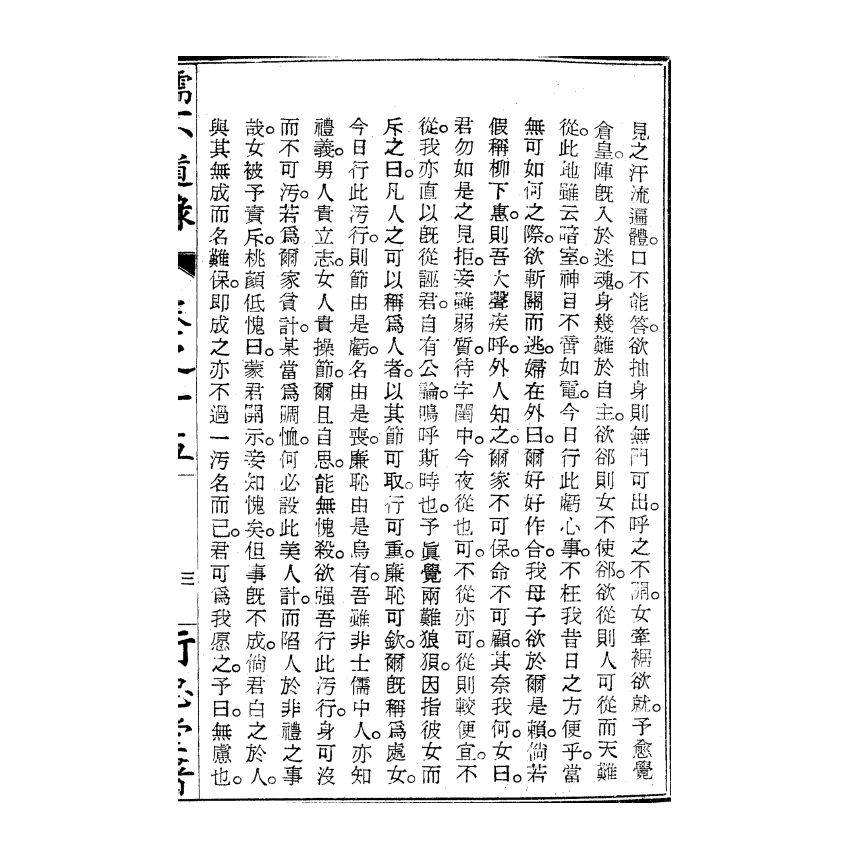 見之汗流遍體。口不能答。欲抽身則無門可出。呼之不開。女牽裾欲就。予愈覺
倉皇。陣旣入於迷魂。身幾難於自主。欲郤則女不使郤。欲從則人可從而天難
從。此地雖云暗室。神目不啻如電。今日行此虧心事。不枉我昔日之方便乎。當
無可如何之際。欲斬關而逃。婦在外曰。爾好好作合。我母子欲於爾是賴。倘若
假稱柳下惠。則吾大聲疾呼。外人知之。爾家不可保。命不可顧。其奈我何。女曰。
君勿如是之見拒。妾雖弱質。待字閨中。今夜從也可。不從亦可。從則較便宜。不
從。我亦直以旣從誣君。自有公論。嗚呼斯時也。予眞覺兩難狼狽。因指彼女而
斥之曰。凡人之可以稱爲人者。以其節可取。行可重。廉恥可欽。爾旣稱爲處女。
今日行此汚行。則節由是虧。名由是喪。廉恥由是烏有。吾雖非士儒中人。亦知
禮義。男人貴立志。女人貴操節。爾且自思。能無愧殺。欲强吾行此汚行。身可沒
而不可汚。若爲爾家貧計。某當爲賙恤。何必設此美人計。而陷人於非禮之事
哉。女被予責斥。桃顏低愧曰。蒙君開示。妾知愧矣。但事旣不成。倘君白之於人。
與其無成而名難保。卽成之亦不過一汚名而已。君可爲我愿之。予曰。無慮也。
卷之十五
三